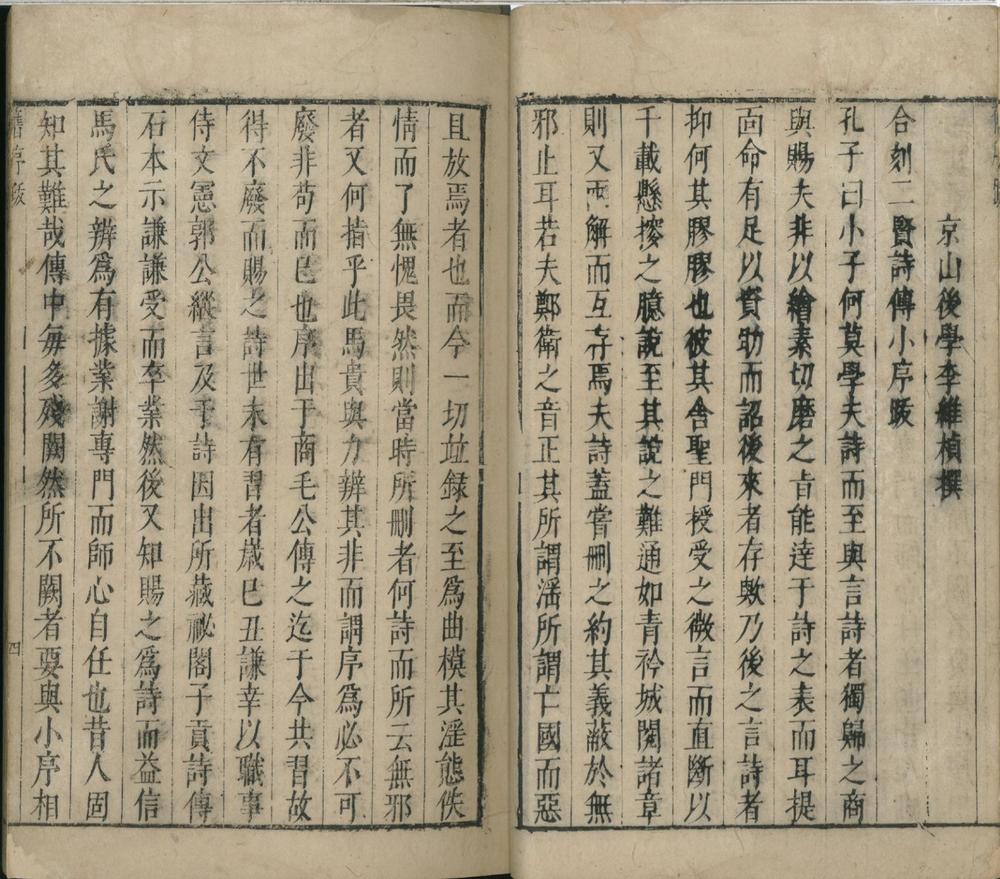 京山後學李維楨撰
合刻二賢詩傳小序䟦
孔子曰小子何莫學夫詩而至與言詩者獨歸之商
與賜夫非以繪素切磨之旨能達于詩之表而耳提
面命有足以資助而詔後來者存歟乃後之言詩者
抑何其膠膠也彼其舍聖門授受之微言而直斷以
千載懸揆之臆說至其說之難通如青衿城闕諸章
則又兩解而互存焉夫詩蓋嘗刪之約其義蔽於無
邪止耳若夫鄭衛之音正其所謂滛所謂亡國而惡
且放焉者也而今一切並録之至爲曲模其滛態佚
情而了無愧畏然則當時所刪者何詩而所云無邪
者又何指乎此馬貴與力辨其非而謂序爲必不可
廢非苟而已也序出于商毛公傳之迄于今共習故
得不廢而賜之詩世未有習者歲巳丑謙幸以職事
侍文憲郭公縱言及于詩因出所藏祕閣子貢詩傳
石本示謙謙受而卒業然後又知賜之爲詩而益信
馬氏之辨爲有據業謝專門而師心自任也昔人固
知其難哉傳中每多殘闕然所不闕者要與小序相
舊序䟦
四